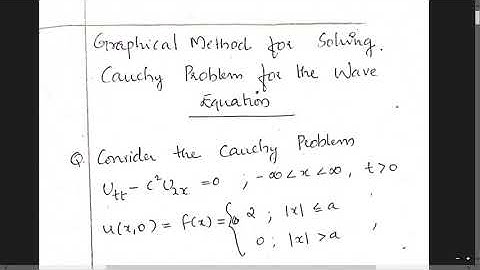 Graphical Method for Solving.
Cauchy Problem for the Wave
Equation
Q. Consider the Cauchy Problem
Utt - c²Uxx = 0 ; -∞<x<∞, t>0
u(x,0) = f(x) = { 2 ; |x| ≤ a
0 ; |x| > a ,